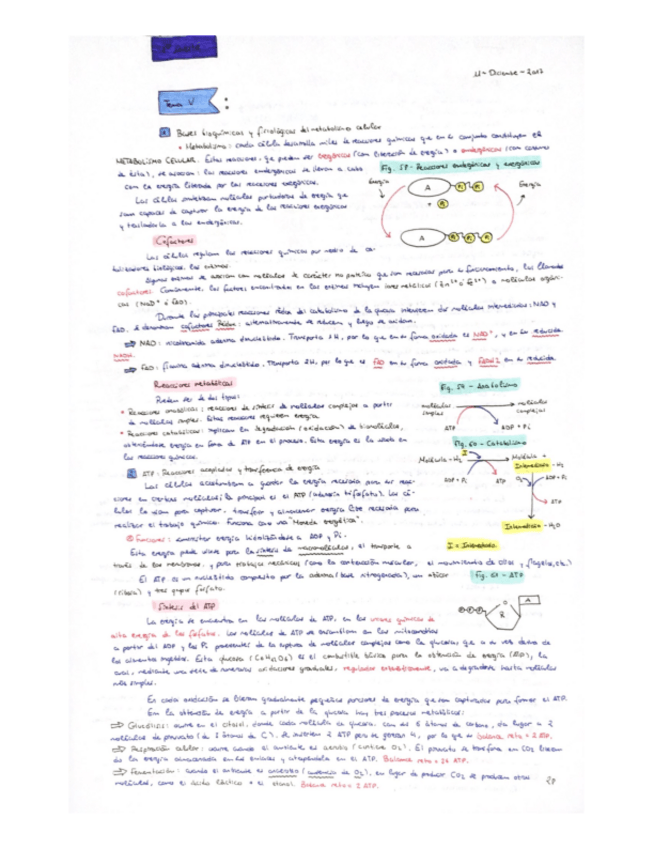 11 - Diciembre - 2017
Tema V :
1 Bases bioquímicas y fisiológicas del metabolismo celular
• Metabolismo: cada célula desarrolla miles de reacciones químicas que en su conjunto constituyen el
METABOLISMO CELULAR. Estas reacciones, que pueden ser exergónicas (con liberación de energía) o endergónicas (con consumo
de ésta), se asocian: las reacciones endergónicas se llevan a cabo
Fig. 58 - Reacciones endergónicas y exergónicas
con la energía liberada por las reacciones exergónicas.
Energía
A
P P
Energía
Las células sintetizan moléculas portadoras de energía que
+ P
son capaces de capturar la energía de las reacciones exergónicas
y trasladarla a las endergónicas.
A
P P P
Cofactores
Las células regulan las reacciones químicas por medio de ca-
talizadores biológicos, las enzimas.
Algunas enzimas se asocian con moléculas de carácter no proteico que son necesarias para su funcionamiento, los llamados
cofactores. Comúnmente, los factores encontrados en las enzimas incluyen iones metálicos (Zn²⁺ o Fe²⁺) o moléculas orgáni-
cas (NAD⁺ o FAD).
Durante las principales reacciones redox del catabolismo de la glucosa intervienen dos moléculas intermediarias: NAD y
FAD. Se denominan cofactores Redox: alternativamente se reducen y luego se oxidan.
⇒ NAD: nicotinamida adenina dinucleótido. Transporta 1H, por lo que en su forma oxidada es NAD⁺, y en su reducida
NADH.
⇒ FAD: flavina adenina dinucleótido. Transporta 2H, por lo que es FAD en su forma oxidada y FADH2 en su reducida.
Reacciones metabólicas
Fig. 59 - Anabolismo
Pueden ser de dos tipos:
moléculas simples
moléculas complejas
• Reacciones anabólicas: reacciones de síntesis de moléculas complejas a partir
de moléculas simples. Estas reacciones requieren energía.
ATP
ADP + Pi
• Reacciones catabólicas: implican la degradación (oxidación) de biomoléculas,
Fig. 60 - Catabolismo
obteniéndose energía en forma de ATP en el proceso. Esta energía es la usada en
Molécula - H₂
I
Molécula +
Intermediario - H₂
las reacciones químicas.
ADP + Pi
ATP
O₂
ADP + Pi
2 ATP: Reacciones acopladas y transferencia de energía
ATP
Las células acostumbran a guardar la energía necesaria para sus reac-
ciones en ciertas moléculas; la principal es el ATP (adenosín trifosfato). Las cé-
lulas lo usan para capturar, transferir y almacenar energía libre necesaria para
realizar el trabajo químico. Funciona como una "Moneda energética".
Intermediario - H₂O
Funciones: suministrar energía hidrolizándose a ADP y Pi.
Esta energía puede usarse para la síntesis de macromoléculas, el transporte a
I = Intermediario
través de las membranas, y para trabajos mecánicos (como la contracción muscular, el movimiento de cilios y flagelos, etc.)
El ATP es un nucleótido compuesto por la adenina (base nitrogenada), un azúcar
Fig. 61 - ATP
(ribosa) y tres grupos fosfato.
P P P
O
R
A
Síntesis del ATP
La energía se encuentra en las moléculas de ATP, en los uniones químicas de
alta energía de los fosfatos. Las moléculas de ATP se ensamblan en las mitocondrias
a partir del ADP y los Pi procedentes de la ruptura de moléculas complejas como la glucosa, que a su vez deriva de
los alimentos ingeridos. Esta glucosa (C₆H₁₂O₆) es el combustible básico para la obtención de energía (ATP), la
cual, mediante una serie de numerosas oxidaciones graduales, reguladas enzimáticamente, va a degradarse hasta moléculas
más simples.
En cada oxidación se liberan gradualmente pequeñas porciones de energía que son capturadas para formar el ATP.
En la obtención de energía a partir de la glucosa hay tres procesos metabólicos:
⇒ Glucólisis: ocurre en el citosol, donde cada molécula de glucosa, con sus 6 átomos de carbono, da lugar a 2
moléculas de piruvato (de 3 átomos de C). Se invierten 2 ATP pero se generan 4, por lo que su balance neto = 2 ATP.
⇒ Respiración celular: ocurre cuando el ambiente es aerobio (contiene O₂). El piruvato se transforma en CO₂ liberan-
do la energía almacenada en sus enlaces y atrapándola en el ATP. Balance neto =
⇒ Fermentación: cuando el ambiente es anaerobio (ausencia de O₂), en lugar de producir CO₂ se producen otras
moléculas, como el ácido láctico o el etanol. Balance neto = 2 ATP.